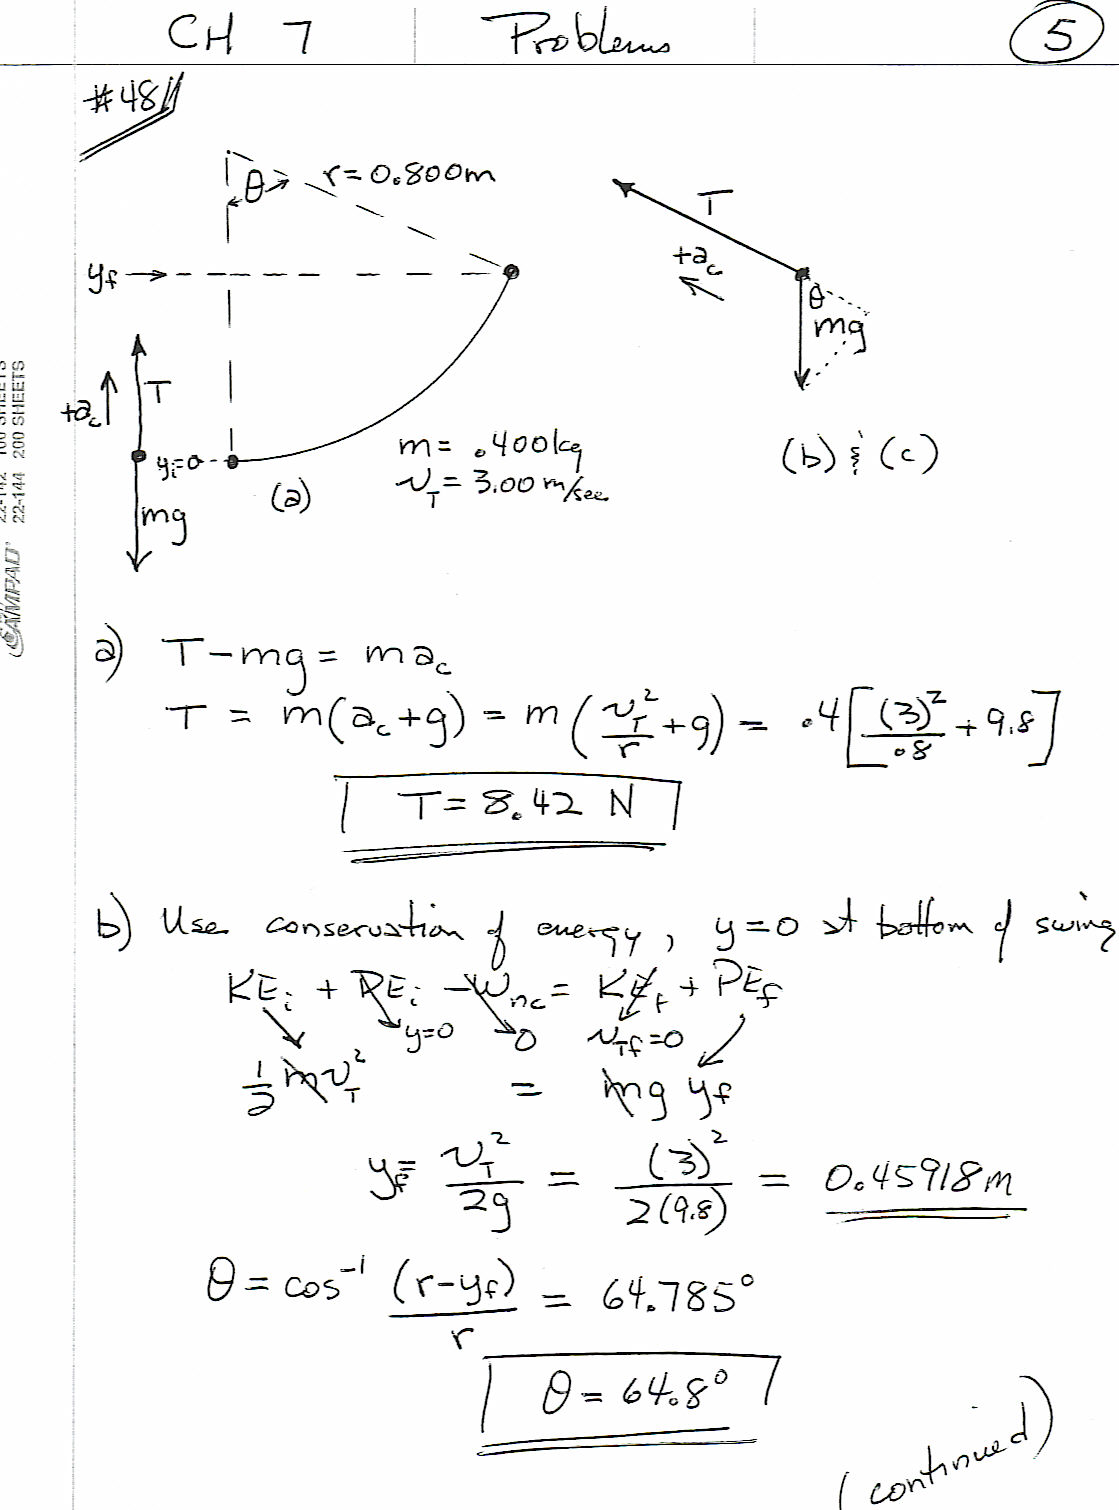 CH 7 Problems 5
#48
θ r=0.800m
T
+a_c
y_f
θ
mg
T
+a_c
y_i=0
m= .400kg
v_T = 3.00 m/sec
(a)
(b) & (c)
mg
22-144 200 SHEETS
CAMPAD
a) T-mg = ma_c
T = m(a_c+g) = m(v_T²/r +g) = .4[(3)²/.8 + 9.8]
T= 8.42 N
b) Use conservation of energy, y=0 at bottom of swing
KE_i + PE_i - W_nc = KE_f + PE_f
y=0 0 v_Tf=0
1/2 mv_T² = mg y_f
y_f = v_T²/2g = (3)²/2(9.8) = 0.45918m
θ = cos⁻¹ (r-y_f)/r = 64.785°
θ = 64.8°
(continued)